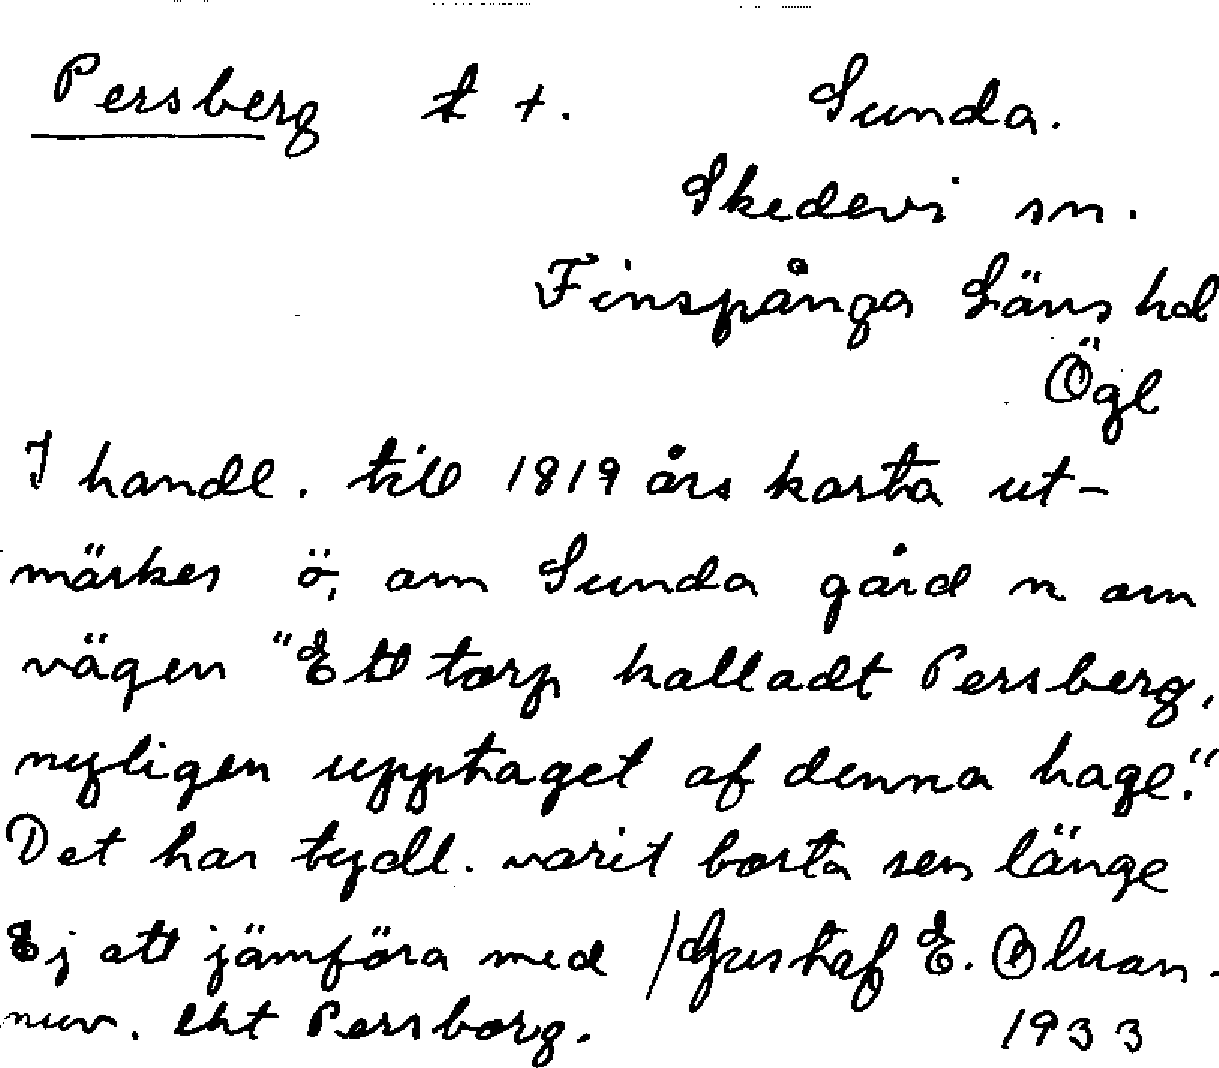 Persberg t +. Sunda.
Skedevi sn.
Finspånga Läns hd
Ögl
I handl. till 1819 års karta ut-
märkes ö, om Sunda gård n om
vägen "Ett torp kalladt Persberg,
nyligen upptaget af denna hage."
Det har tydl. varit borta sen länge
Ej att jämföra med /Gustaf E.
nuv. lht Persborg. 1933